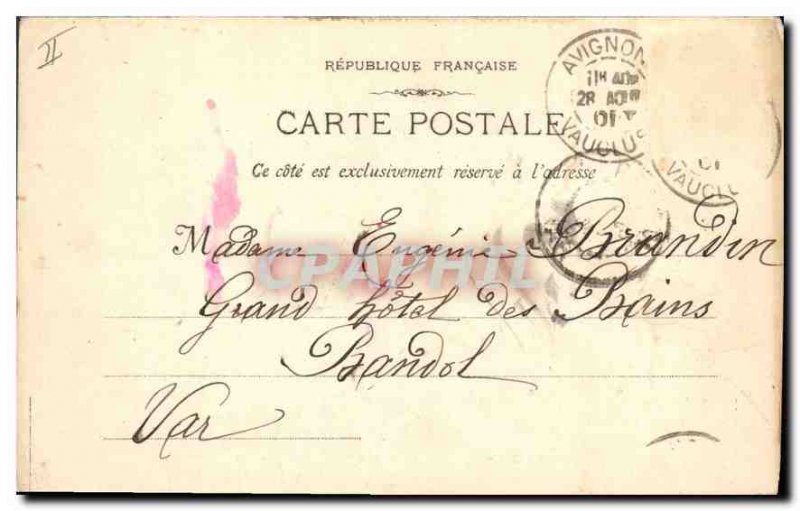 II
RÉPUBLIQUE FRANÇAISE
CARTE POSTALE
Ce côté est exclusivement réservé à l'adresse
AVIGNON
28 AOUT
01
VAUCLUSE
01
VAUCLU
Madame Eugénie Brandin
Grand hôtel des Bains
Bandol
Var
CPAPHIL